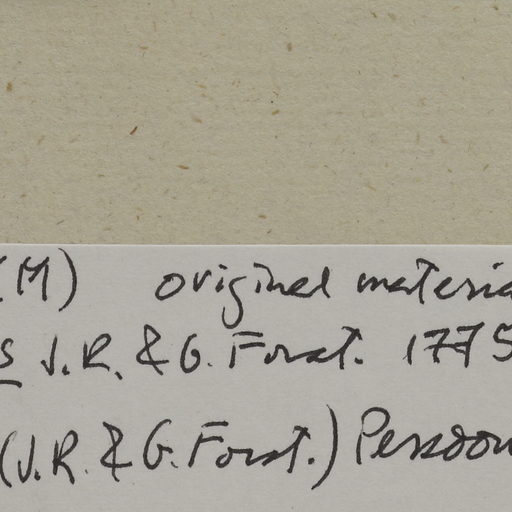 (M) original materia
s J. R. & G. Forst. 1775
(J. R. & G. Forst.) Persoon